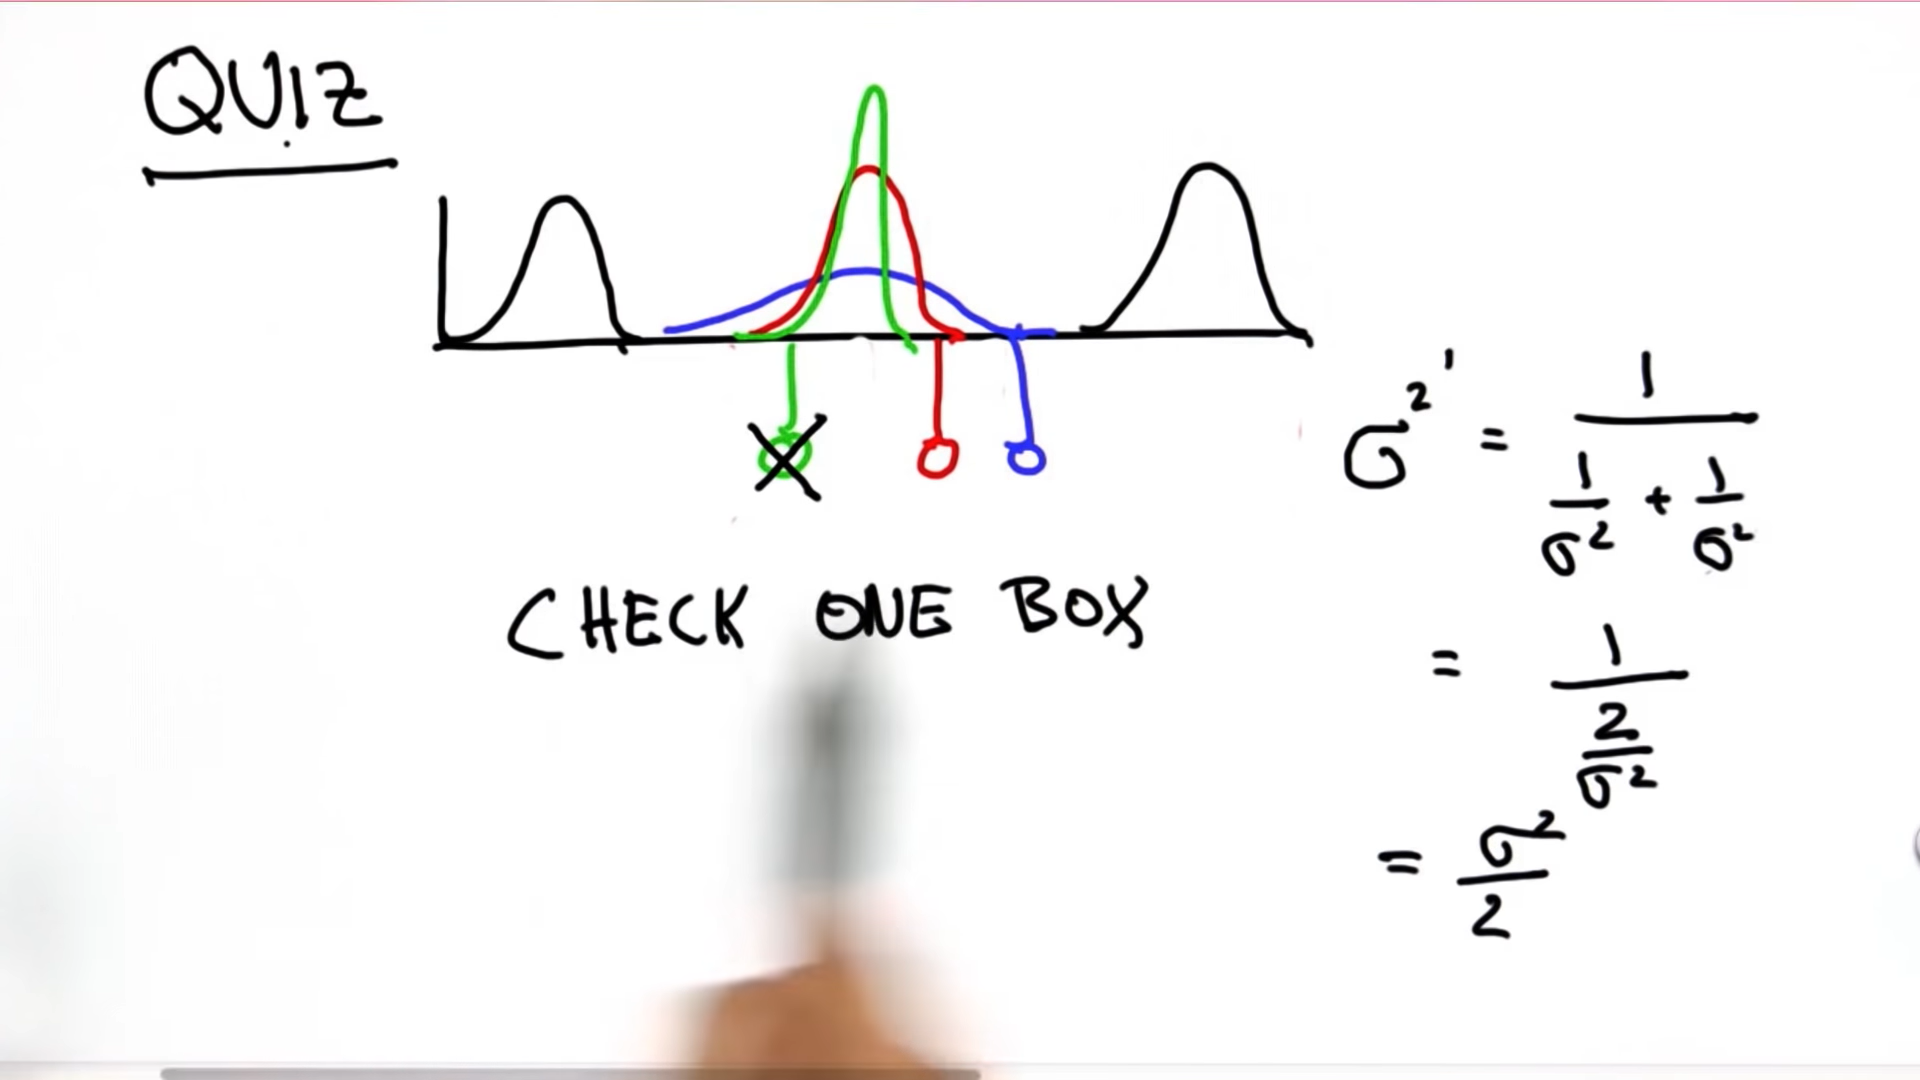 QUIZ
CHECK ONE BOX
σ²' = 1 / (1/σ² + 1/σ²)
= 1 / (2/σ²)
= σ²/2